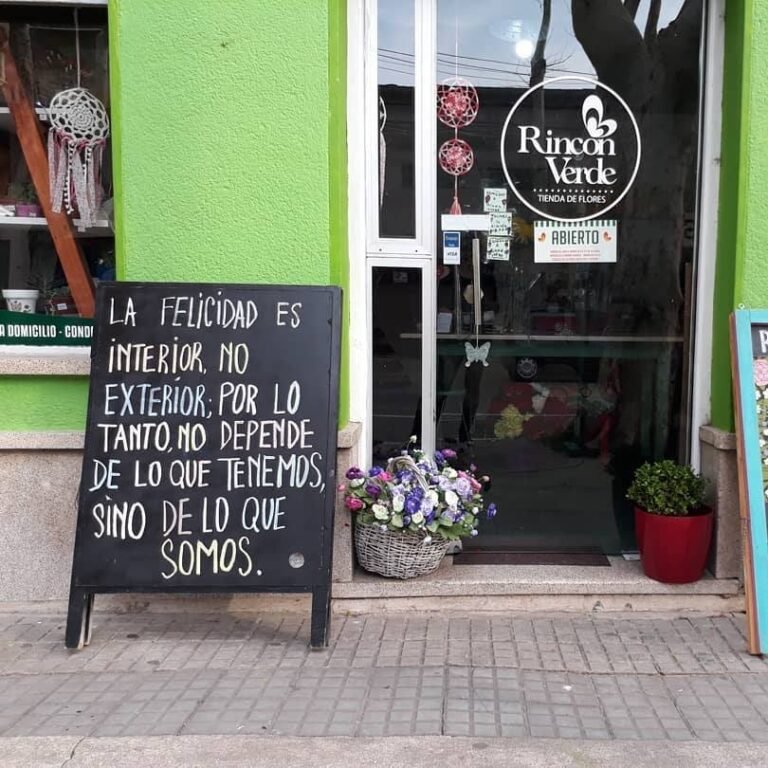 LA FELICIDAD ES
INTERIOR, NO
EXTERIOR; POR LO
TANTO, NO DEPENDE
DE LO QUE TENEMOS,
SINO DE LO QUE
SOMOS.
A DOMICILIO - COND
Rincón
Verde
TIENDA DE FLORES
ABIERTO